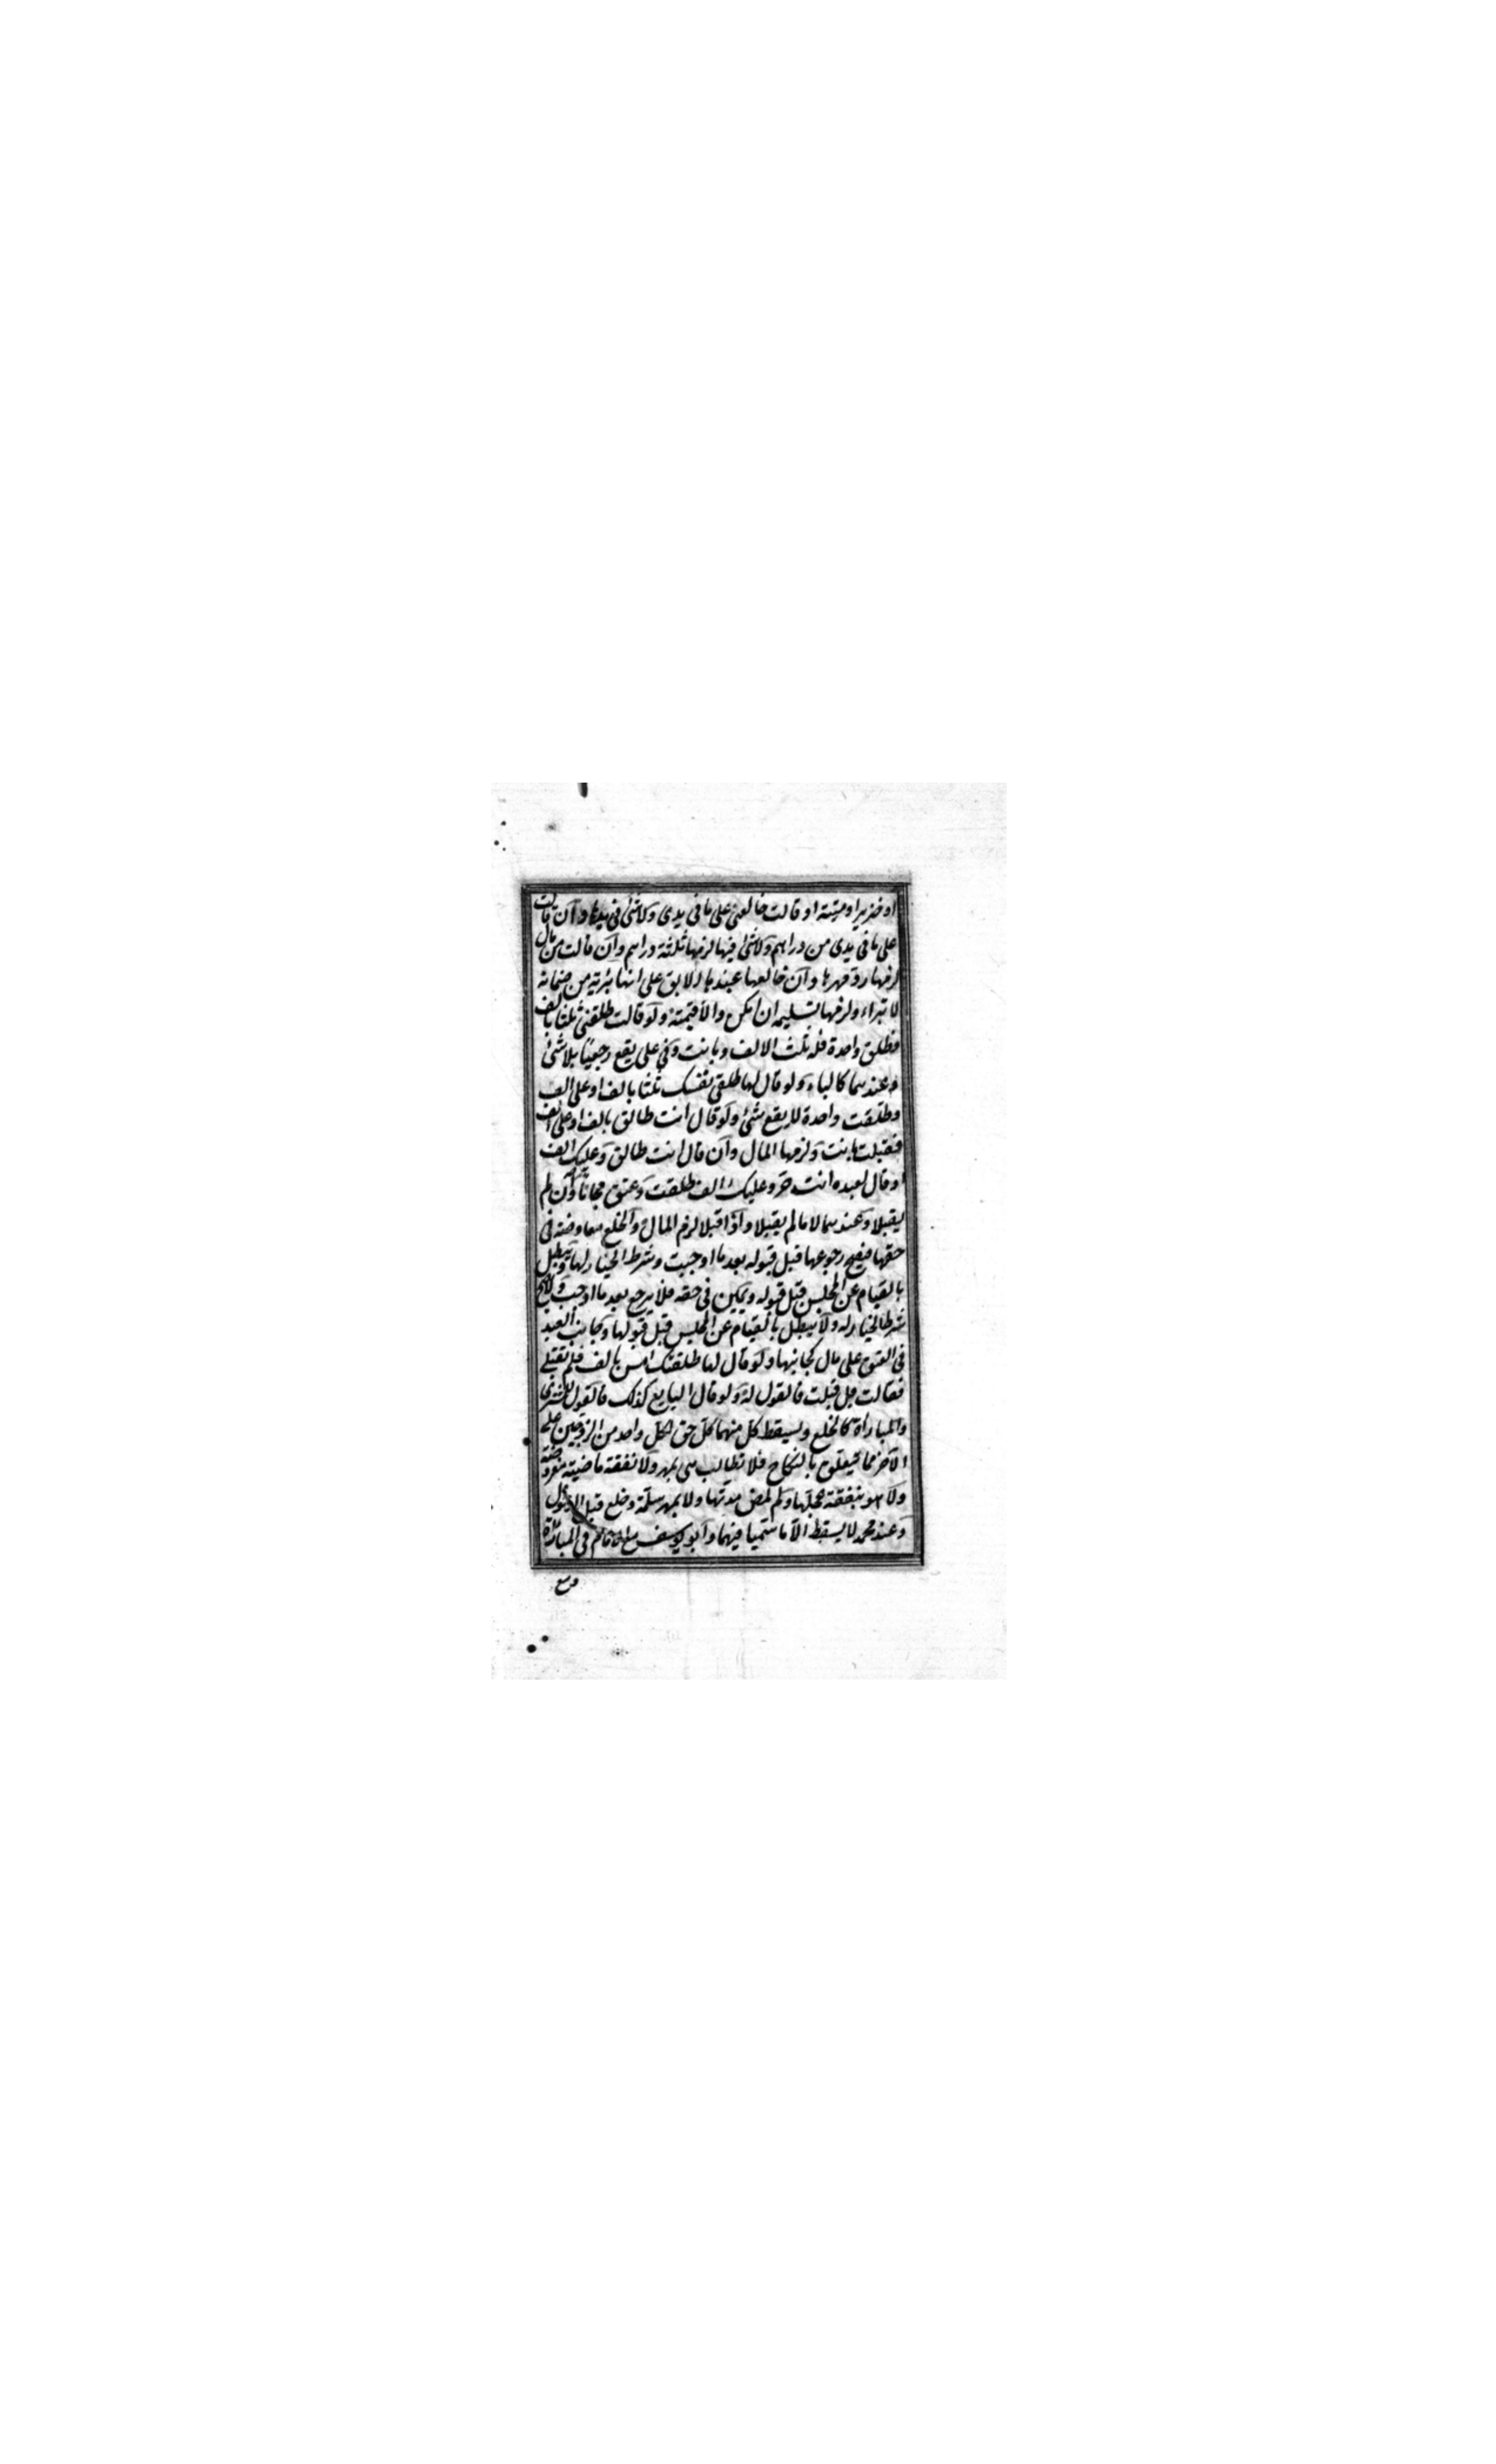 او خنزيرا وميتة او قالت خالعني على ما في يدى ولا شئ في يدها وان قالت
على ما في يدى من دراهم ولا شئ فيها لزمها ثلثة دراهم وان قالت من مال
لزمها رد مهرها وان خالعها عبد لها ابق على انها بريئة من ضمانه
لا تبراء ولزمها تسليمه ان امكن والا قيمته ولو قالت طلقني ثلثا بالف
فطلق واحدة فله ثلث الالف وبانت وفي على يقع رجعيا بلا شئ
وعندهما كالباء ولو قال لها طلقي نفسك ثلثا بالف او على الف
وطلقت واحدة لا يقع شئ ولو قال انت طالق بالف او على الف
فقبلت بانت ولزمها المال وان قال انت طالق وعليك الف
او قال لعبده انت حر وعليك الف طلقت وعتق مجانا وان لم
يقبلا وعندهما لا ما لم يقبلا واذا قبلا لزم المال والخلع معاوضة في
حقها فيصح رجوعها قبل قبوله بعد ما اوجبت وشرط الخيار لها ويبطل
بالقيام عن المجلس قبل قبوله ويمين في حقه فلا يرجع بعد ما اوجب ولا يصح
شرط الخيار له ولا يبطل بالقيام عن المجلس قبل قبولها وجانب العبد
في العتق على مال كجانبها ولو قال لها طلقتك امس بالف فلم تقبلي
فقالت بل قبلت فالقول له ولو قال البايع كذلك فالقول للمشترى
والمباراة كالخلع ويسقط كل منهما كل حق لكل واحد من الزوجين على
الآخر مما يتعلق بالنكاح فلا تطالب هي بمهر ولا نفقة ماضية مفروضة
ولا هو بنفقة عجلها ولم تمض مدتها ولا بمهر سلمه وخلع قبل الدخول
وعند محمد لا يسقط الا ما سميا فيهما وابو يوسف مع الامام في المباراة
ومع